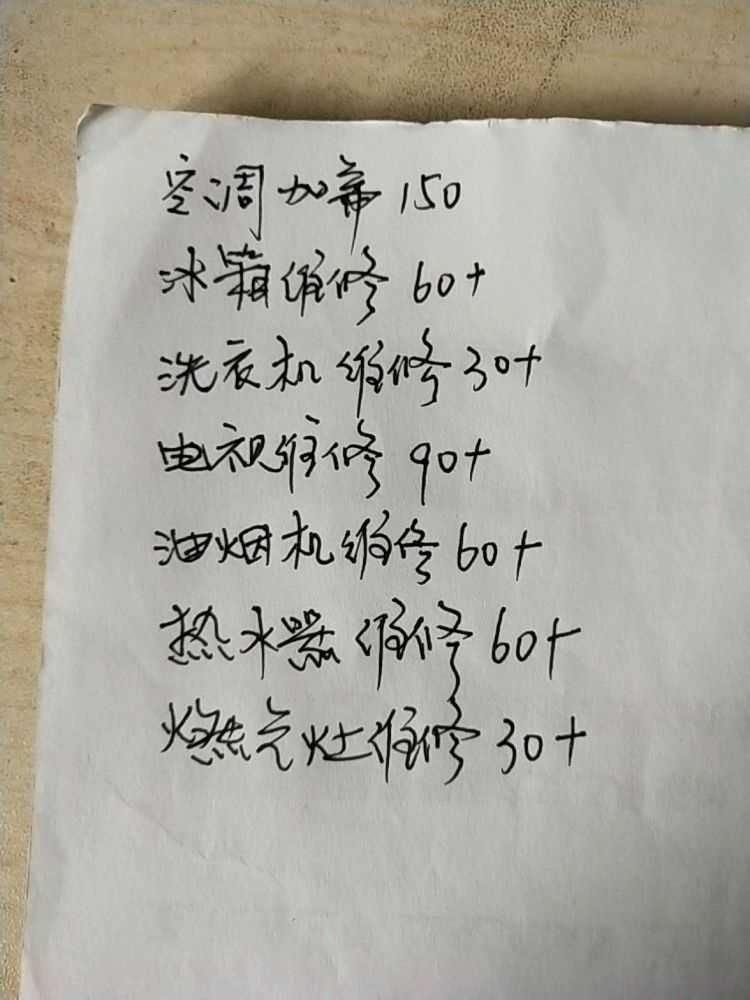 空调加氟150
冰箱维修60+
洗衣机维修30+
电视维修90+
油烟机维修60+
热水器维修60+
燃气灶维修30+